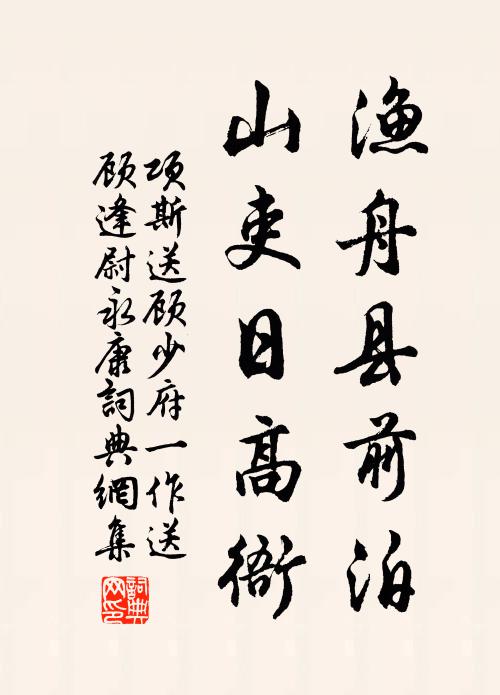 渔舟县前泊
山吏日高衙
项斯送顾少府一作送
顾逢尉永康詞典網集
詞典網印